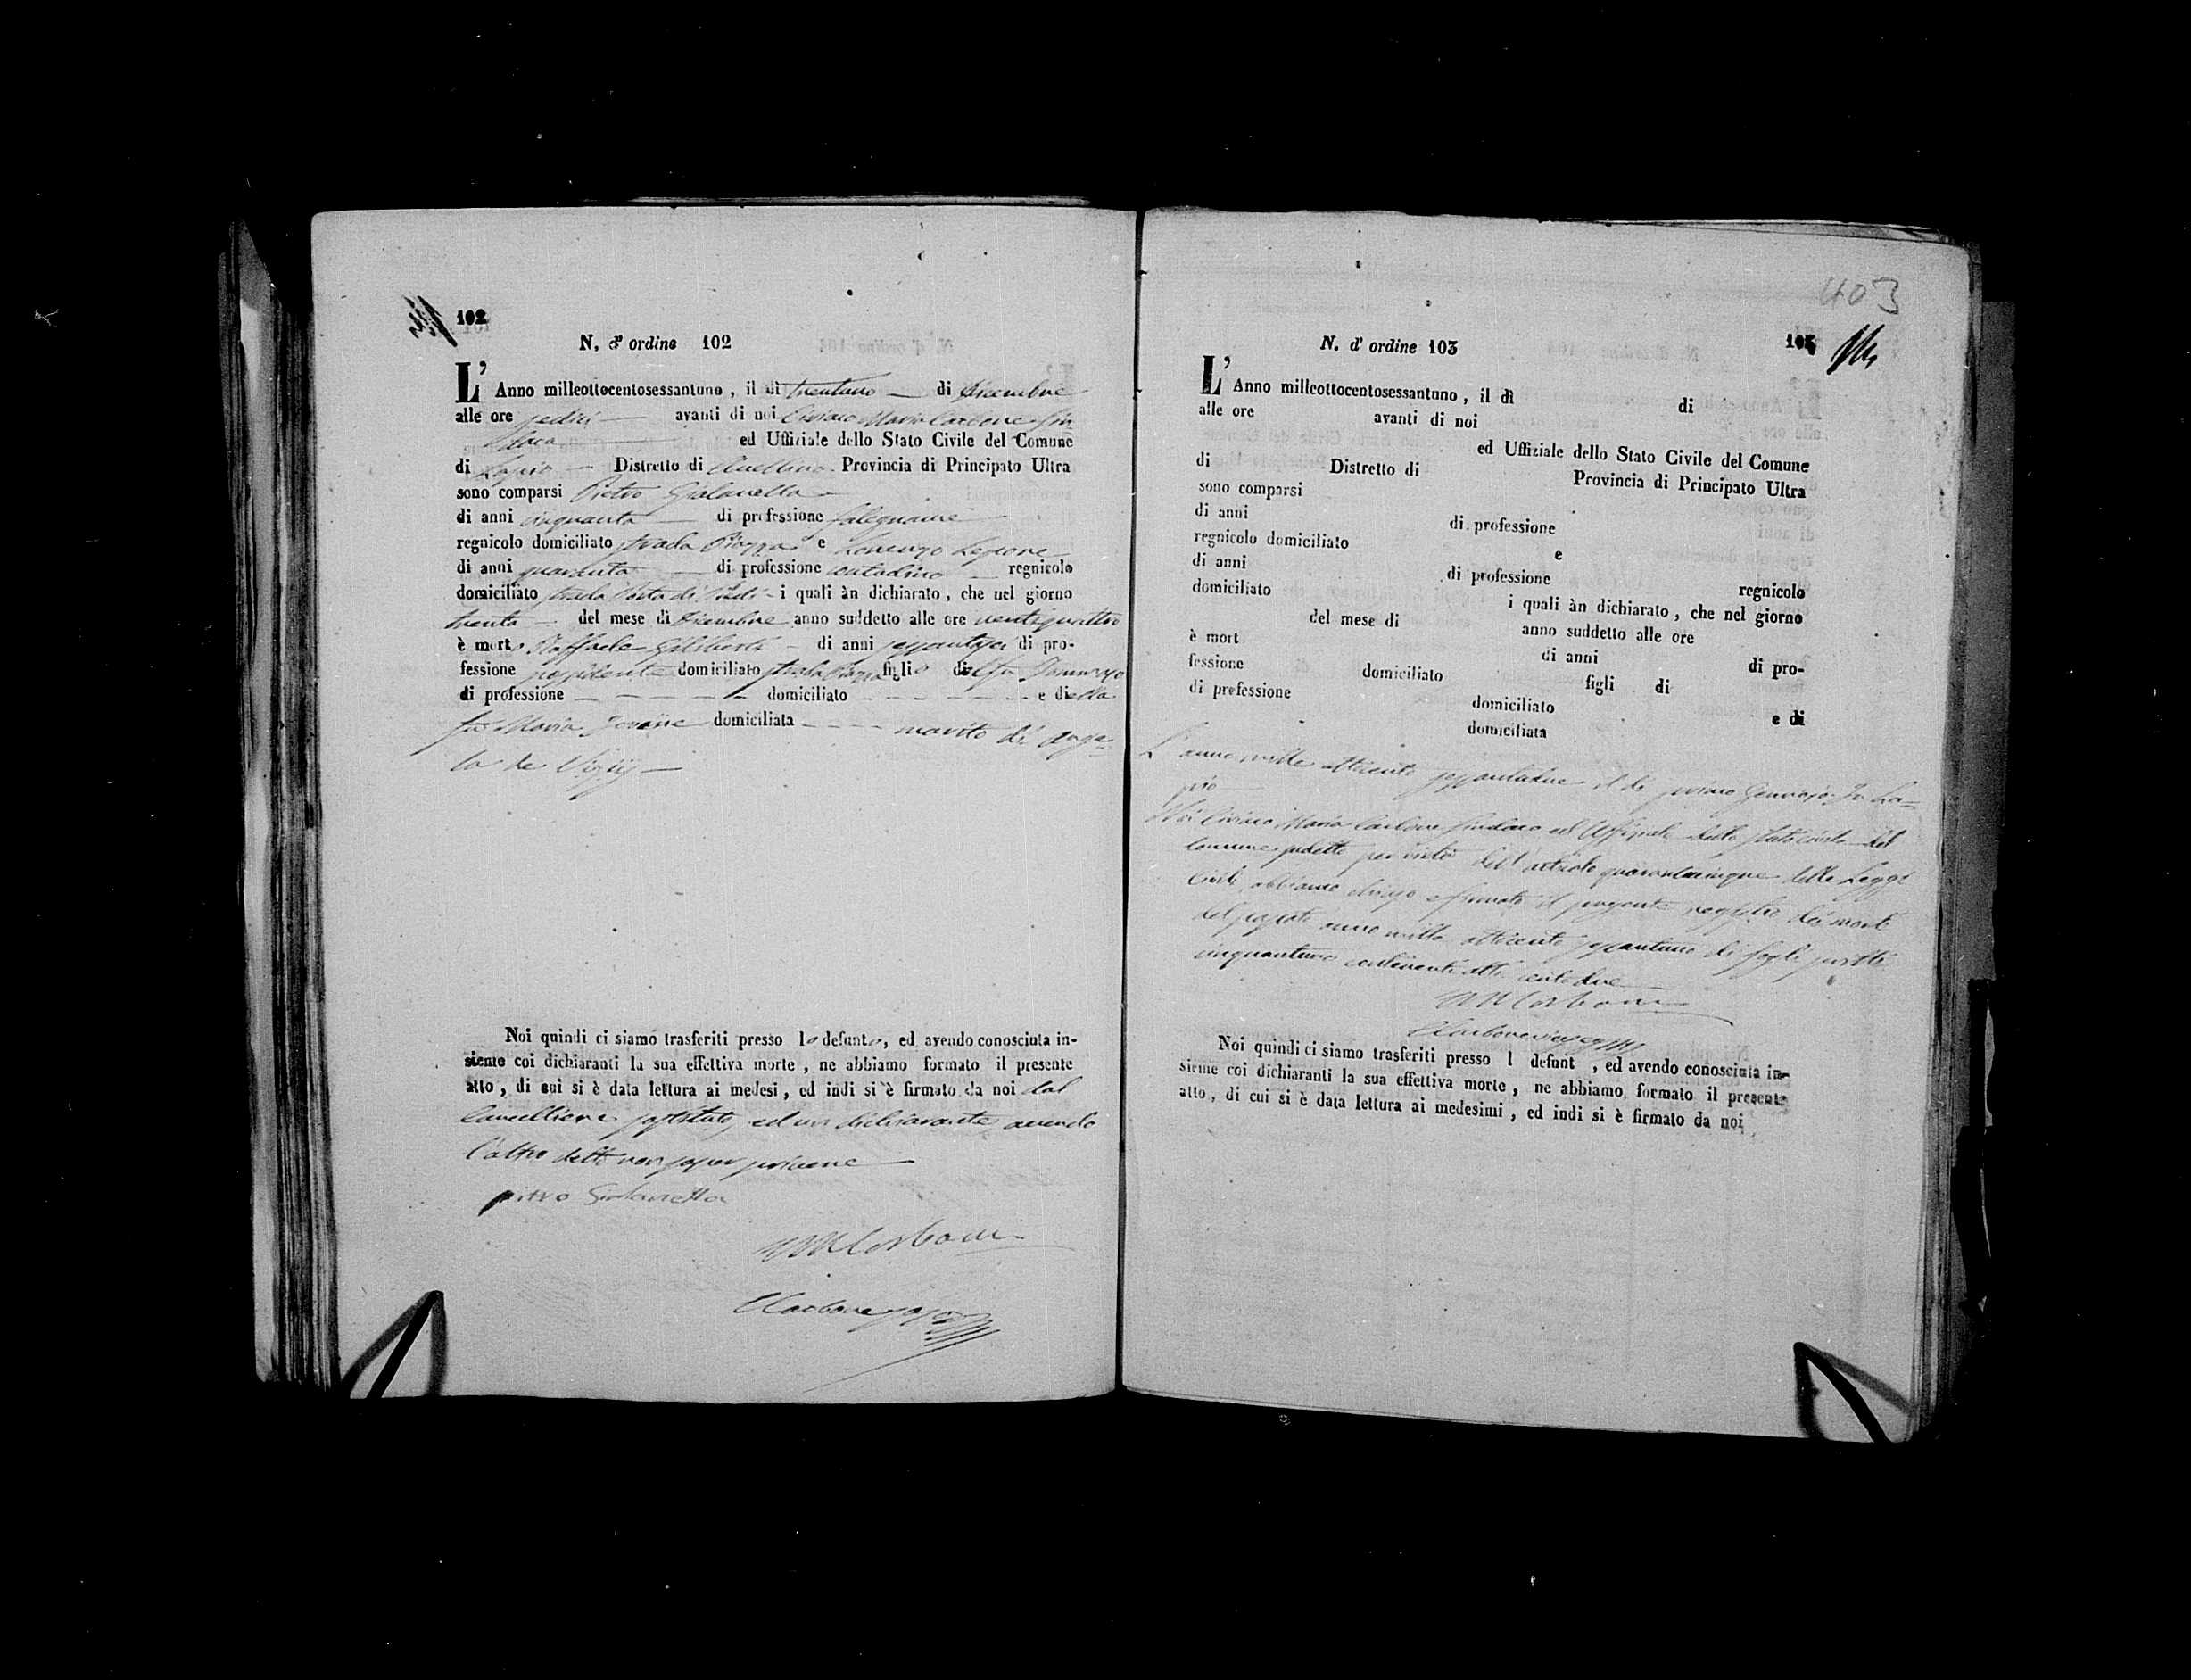 102
N. d' ordine 102
L' Anno milleottocentosessantuno, il dì trentuno di Dicembre
alle ore sedici avanti di noi Ciriaco Maria Carbone Sin
daco ed Uffiziale dello Stato Civile del Comune
di Lapio Distretto di Avellino Provincia di Principato Ultra
sono comparsi Pietro Gialanella
di anni cinquanta di professione falegname
regnicolo domiciliato strada Piazza e Lorenzo
di anni quaranta di professione contadino regnicolo
domiciliato strada Porta di i quali àn dichiarato, che nel giorno
trenta del mese di Dicembre anno suddetto alle ore ventiquattro
è morto Raffaele Giliberti di anni sessantasei di pro-
fessione possidente domiciliato strada Piazza figlio del fu
di professione domiciliato e della
fu Maria domiciliata marito di Ange
la de
Noi quindi ci siamo trasferiti presso lo defunto, ed avendo conosciuta in-
sieme coi dichiaranti la sua effettiva morte, ne abbiamo formato il presente
atto, di cui si è data lettura ai medesi, ed indi si è firmato da noi dal
Cancelliere sostituto, ed un dichiarante avendo
l'altro detto non saper scrivere
pitro Gialanella
CM Carbone
Carbone
403
N. d' ordine 103
103
L' Anno milleottocentosessantuno, il dì di
alle ore avanti di noi
ed Uffiziale dello Stato Civile del Comune
di Distretto di Provincia di Principato Ultra
sono comparsi
di anni di professione
regnicolo domiciliato e
di anni di professione regnicolo
domiciliato i quali àn dichiarato, che nel giorno
del mese di anno suddetto alle ore
è mort di anni di pro-
fessione domiciliato figli di
di professione domiciliato e di
domiciliata
L'anno mille ottocento sessantadue il di primo Gennajo In La=
pio
Noi Ciriaco Maria Carbone Sindaco ed Uffiziale dello stato civile del
Comune sudetto per virtù dell'articolo quarantacinque delle Leggi
Civili, abbiamo chiuso e firmato il presente registro dei morti
del passato anno mille ottocento sessantuno di fogli scritti
cinquantuno contenenti atti centodue
CM Carbone
Carbone
Noi quindi ci siamo trasferiti presso l defunt , ed avendo conosciuta in-
sieme coi dichiaranti la sua effettiva morte, ne abbiamo formato il presente
atto, di cui si è data lettura ai medesimi, ed indi si è firmato da noi